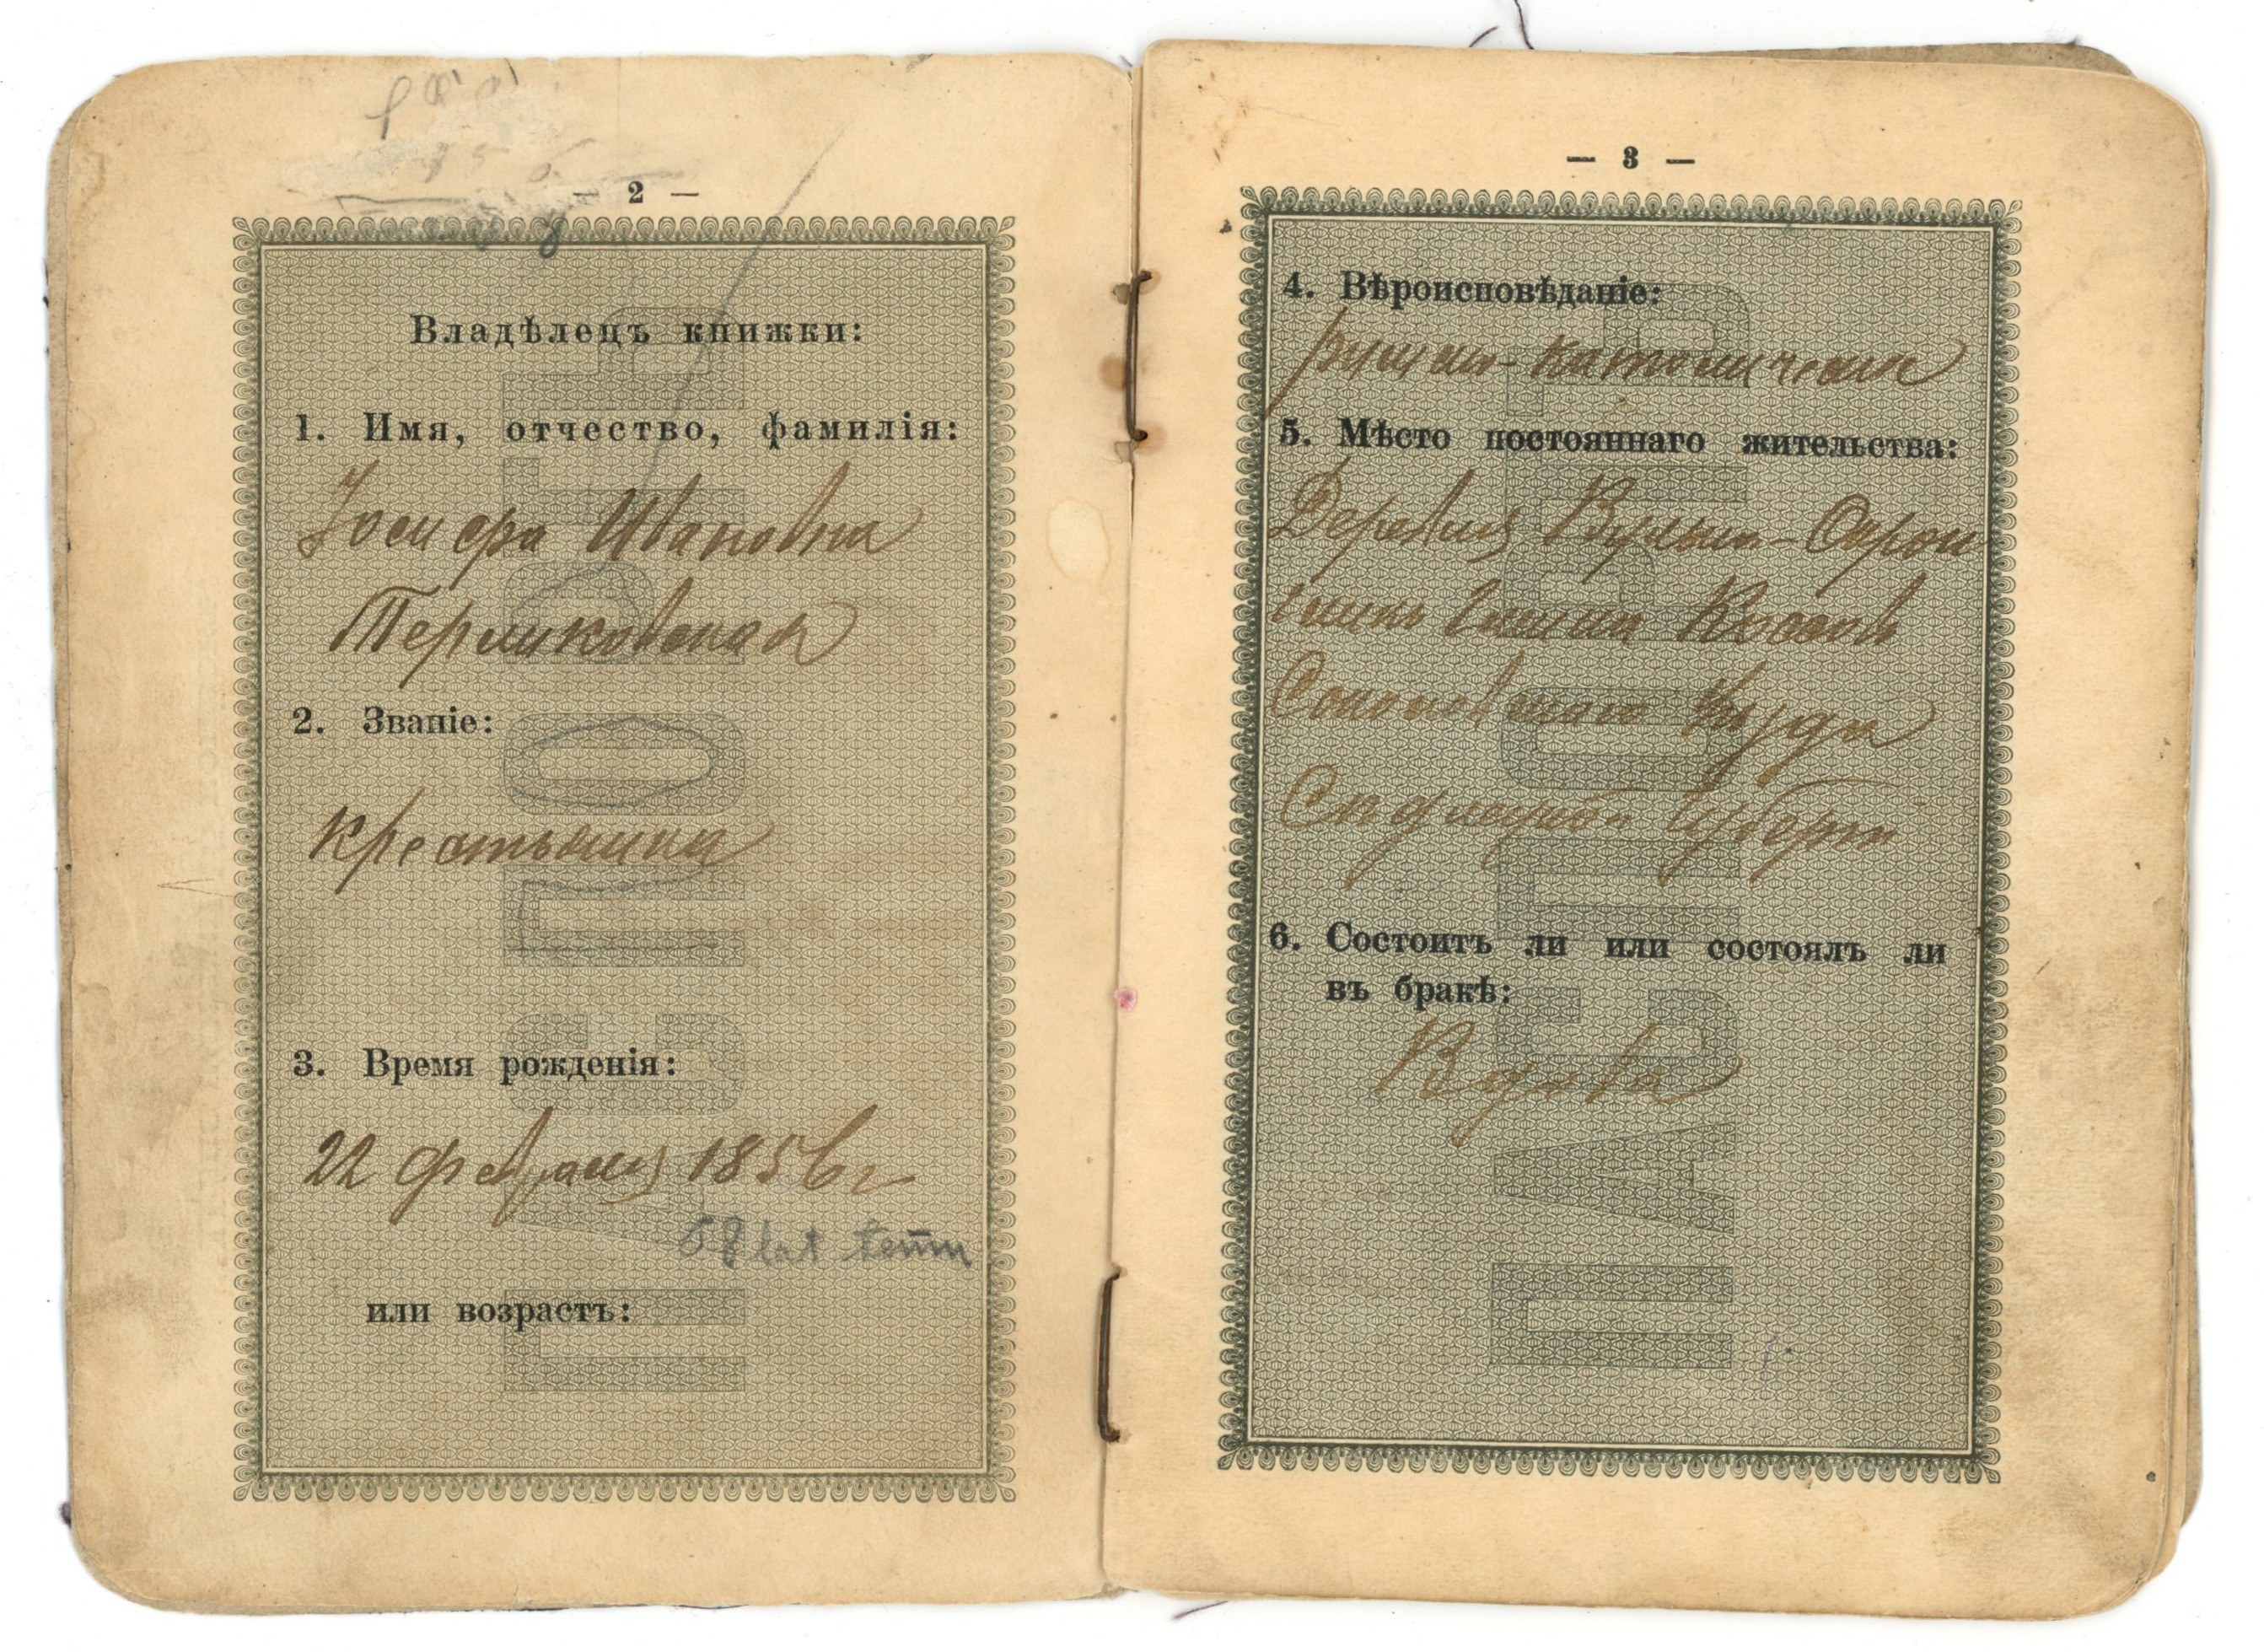 — 2 —
Владѣлецъ книжки:
1. Имя, отчество, фамилія:
Іосифа Ивановна
Терликовская
2. Званіе:
крестьянка
3. Время рожденія:
22 февраля 1856 г
68 lat temu
или возрастъ:
ПАСПОРТЪ
— 3 —
4. Вѣроисповѣданіе:
римско-католическая
5. Мѣсто постояннаго жительства:
Деревня
Соколовскаго уѣзда
Сѣдлецкой губерн
6. Состоитъ ли или состоялъ ли
въ бракѣ:
Вдова
ПАСПОРТЪ